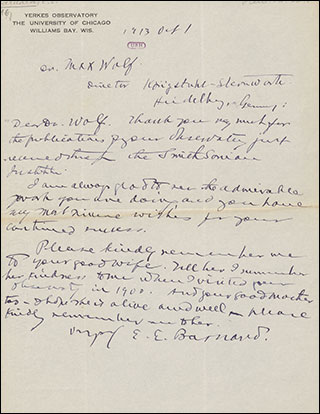 YERKES OBSERVATORY
THE UNIVERSITY OF CHICAGO
WILLIAMS BAY, WIS.
1913 Oct 1
UBH
Dr. Max Wolf.
Director Königstuhl-Sternwarte
Heidelberg Germany;
Dear Dr. Wolf. Thank you very much for
the publications of your Observatory just
received thro the Smithsonian
Institute.
I am always glad to see the admirable
work you are doing and you have
my most sincere wishes for your
continued success.
Please kindly remember me
to your good wife. Tell her I remember
her kindness to me when I visited your
observatory in 1900. And your good mother
too - I hope she is alive and well - please
kindly remember me to her.
E. E. Barnard.